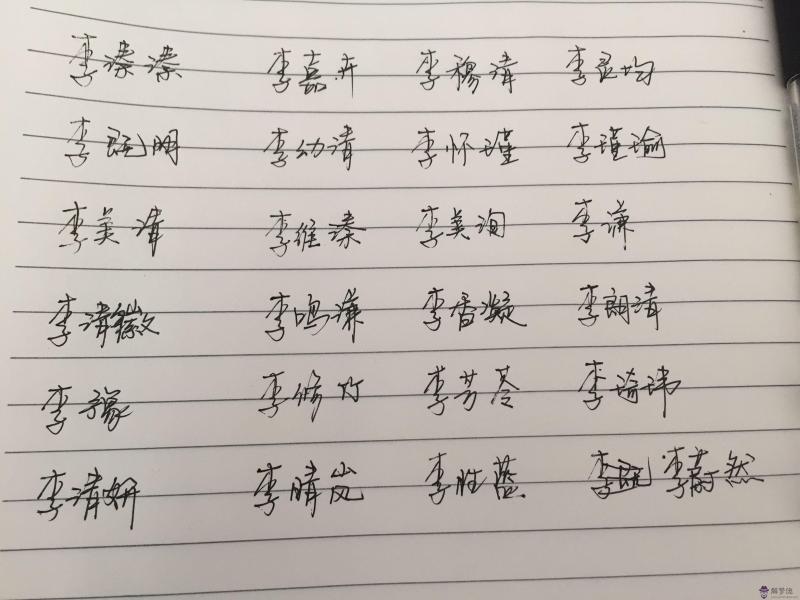 李溱溱 李嘉卉 李穆清 李灵均
李既明 李幼清 李怀瑾 李瑾瑜
李美清 李维溱 李美洵 李潇
李清徽 李鸣濂 李香凝 李朗清
李豫 李修竹 李芳苓 李琦玮
李清妍 李晴岚 李胜蓝 李蔚然
解梦佬